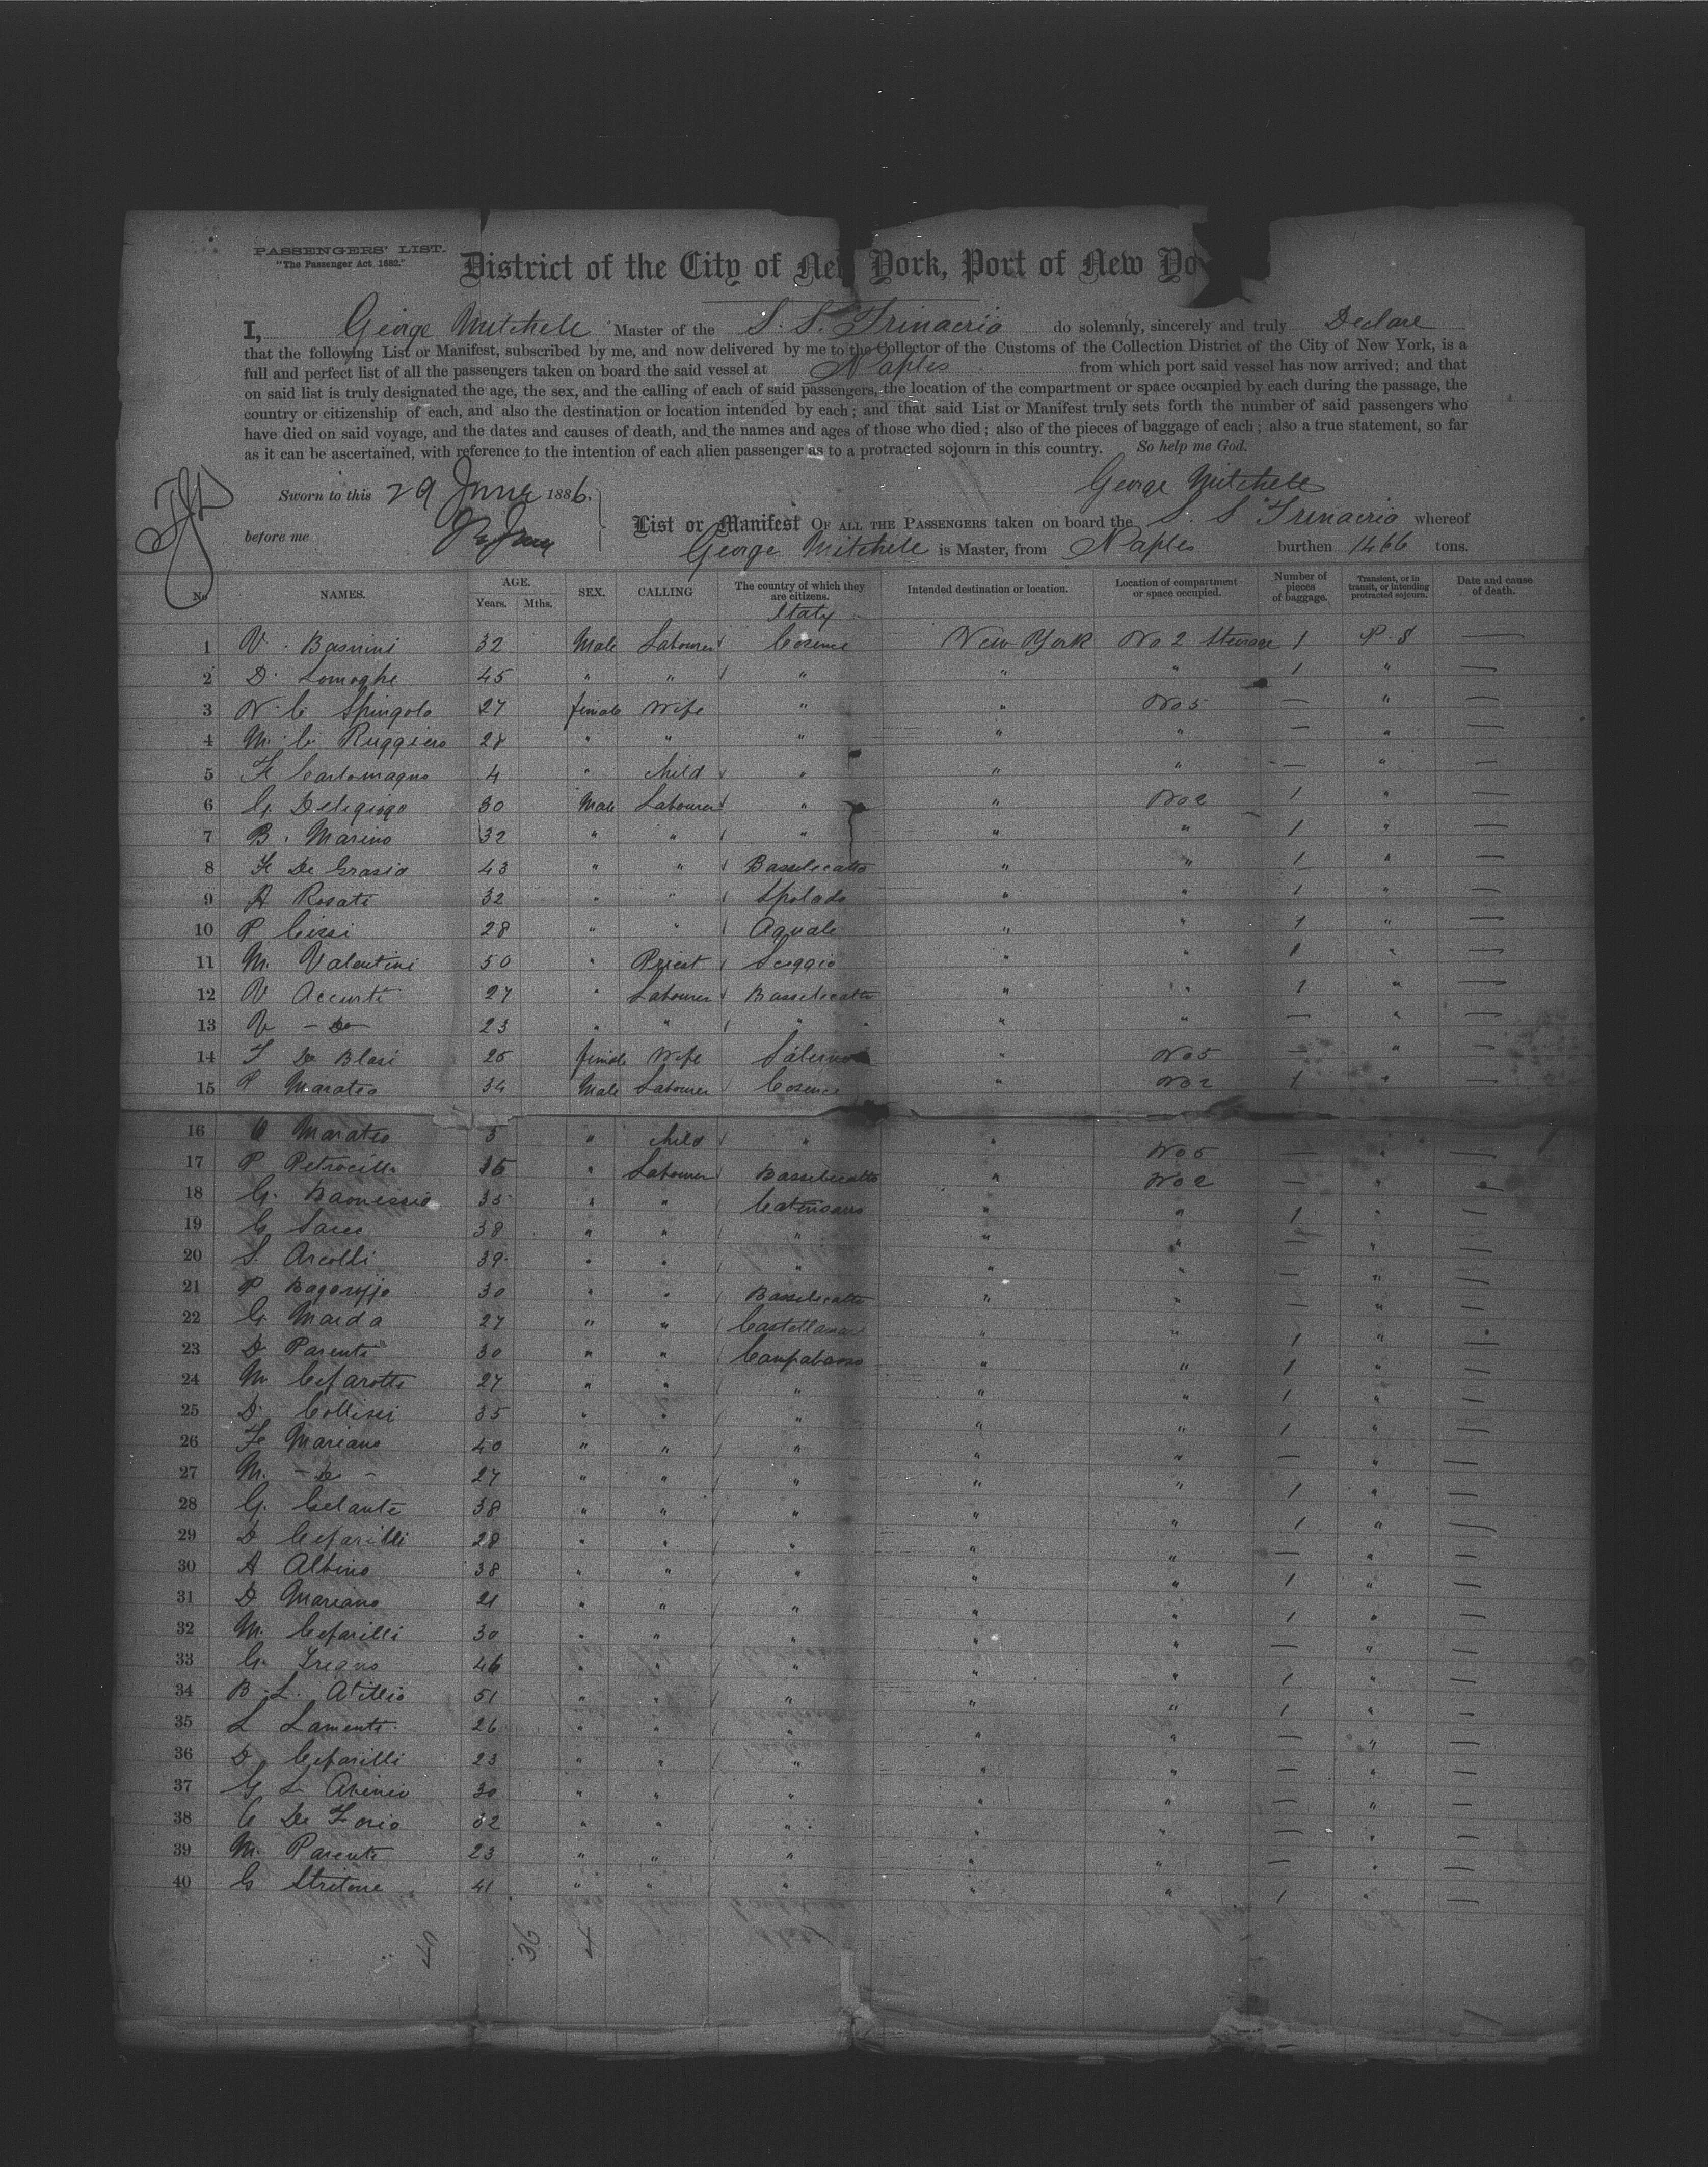 PASSENGERS' LIST.
"The Passenger Act 1882."
District of the City of New York, Port of New Yo
I, George Mitchele Master of the S. S. Trinacria do solemnly, sincerely and truly Declare
that the following List or Manifest, subscribed by me, and now delivered by me to the Collector of the Customs of the Collection District of the City of New York, is a
full and perfect list of all the passengers taken on board the said vessel at Naples from which port said vessel has now arrived; and that
on said list is truly designated the age, the sex, and the calling of each of said passengers, the location of the compartment or space occupied by each during the passage, the
country or citizenship of each, and also the destination or location intended by each; and that said List or Manifest truly sets forth the number of said passengers who
have died on said voyage, and the dates and causes of death, and the names and ages of those who died; also of the pieces of baggage of each; also a true statement, so far
as it can be ascertained, with reference to the intention of each alien passenger as to a protracted sojourn in this country. So help me God.
George Mitchele
Sworn to this 29 June 1886.
before me
List or Manifest OF ALL THE PASSENGERS taken on board the S. S Trinacria whereof
George Mitchele is Master, from Naples burthen 1466 tons.
No NAMES. AGE. Years. Mths. SEX. CALLING The country of which they are citizens. Intended destination or location. Location of compartment or space occupied. Number of pieces of baggage. Transient, or in transit, or intending protracted sojourn. Date and cause of death.
Italy
1 V. Basnini 32 Male Labourer Cosence New York No 2 Steerage 1 P. S —
2 D. Lomoghe 45 " " " " " 1 " —
3 N. C Spingola 27 female Wife " " No 5 — " —
4 M. C Ruggiero 28 " " " " " — " —
5 F Carlomagno 4 " child " " " — " —
6 G. Deligiogo 30 Male Labourer " " No 2 1 " —
7 B. Marino 32 " " " " " 1 " —
8 F De Grasia 43 " " Bassilecatta " " 1 " —
9 A Rosati 32 " " Spolado " " 1 " —
10 P Cissi 28 " " Aquale " " 1 " —
11 M. Valentini 50 " Priest Sceggio " " 1 " —
12 V Accurti 27 " Labourer Bassilecatta " " 1 " —
13 V — Do — 23 " " " " " — " —
14 T De Blasi 25 female Wife Salerno " No 5 — " —
15 P Marateo 34 Male Labourer Cosence " No 2 1 " —
16 C Marateo 3 " child " " No 5 — " —
17 P Petrocilli 36 " Labourer Bassilecatta " No 2 — " —
18 G. 35 " " Catensaro " " 1 " —
19 G Sacco 38 " " " " " — " —
20 S. Arcolli 39 " " " " " — " —
21 P 30 " " Bassilecatta " " — " —
22 G. Maida 27 " " " " 1 " —
23 D Parente 30 " " Campabasso " " 1 " —
24 M Cefarotti 27 " " " " " 1 " —
25 D. Collissi 35 " " " " " 1 " —
26 Fe Mariano 40 " " " " " — " —
27 M. — Do — 27 " " " " " 1 " —
28 G. Celante 38 " " " " " 1 " —
29 D Cefarilli 28 " " " " " — " —
30 A Albino 38 " " " " " 1 " —
31 D Mariano 21 " " " " " 1 " —
32 M. Cefarilli 30 " " " " " — " —
33 G. Fregno 46 " " " " " 1 " —
34 B. L. Atillio 51 " " " " " 1 " —
35 L Lamente 26 " " " " " — " —
36 D Cefarilli 23 " " " " " — " —
37 G L 30 " " " " " — " —
38 C De Forio 32 " " " " " — " —
39 M. Parente 23 " " " " " — " —
40 G Stritone 41 " " " " " 1 " —
40 36 4